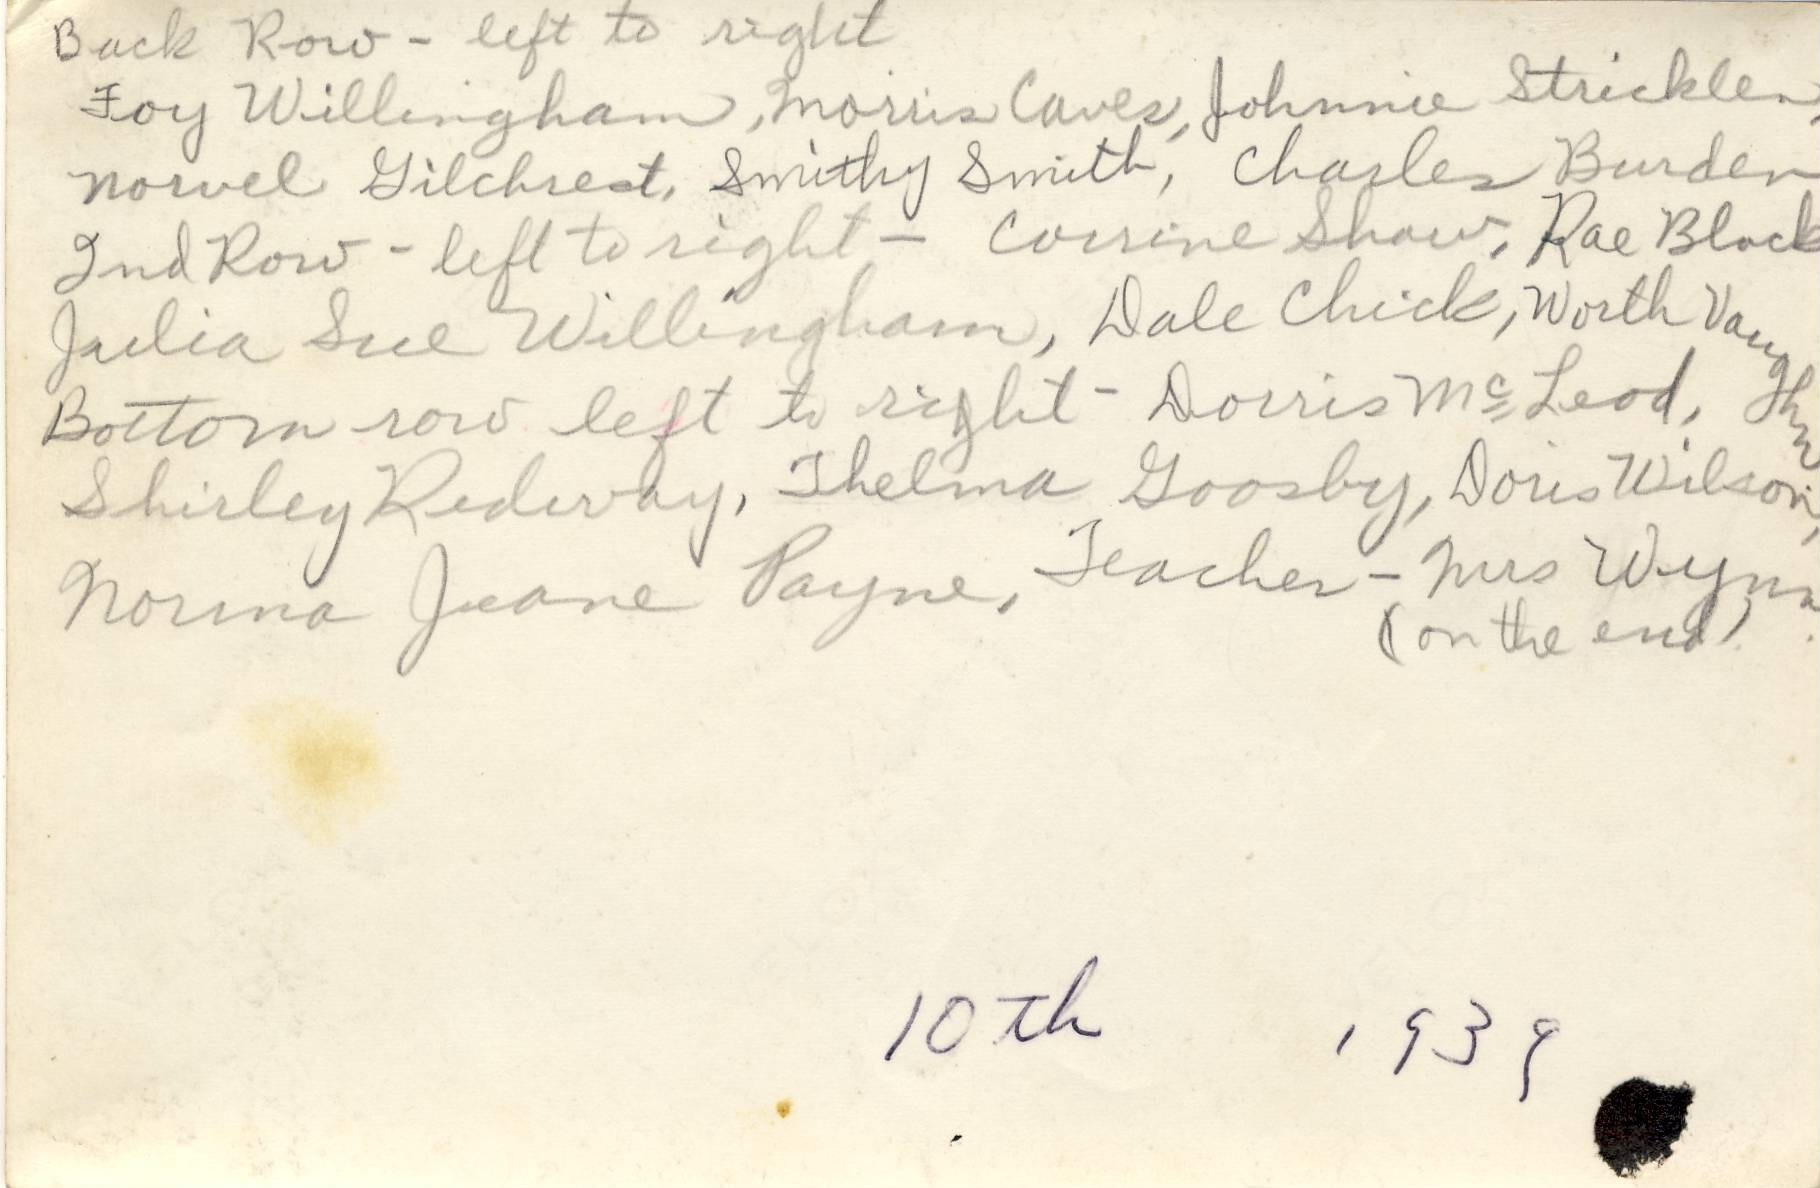 Back Row - left to right
Foy Willingham, Morris Caves, Johnnie Stricklen,
Norvel Gilchrest, Smithy Smith, Charles Burden
2nd Row - left to right - Corrine Shaw, Rae Black
Julia Sue Willingham, Dale Chick, Worth Vaughn
Bottom row left to right - Dorris McLeod,
Shirley Redivay, Thelma Goosby, Doris Wilson,
Norma Jeane Payne, Teacher - Mrs Wynn
(on the end).
10th 1939